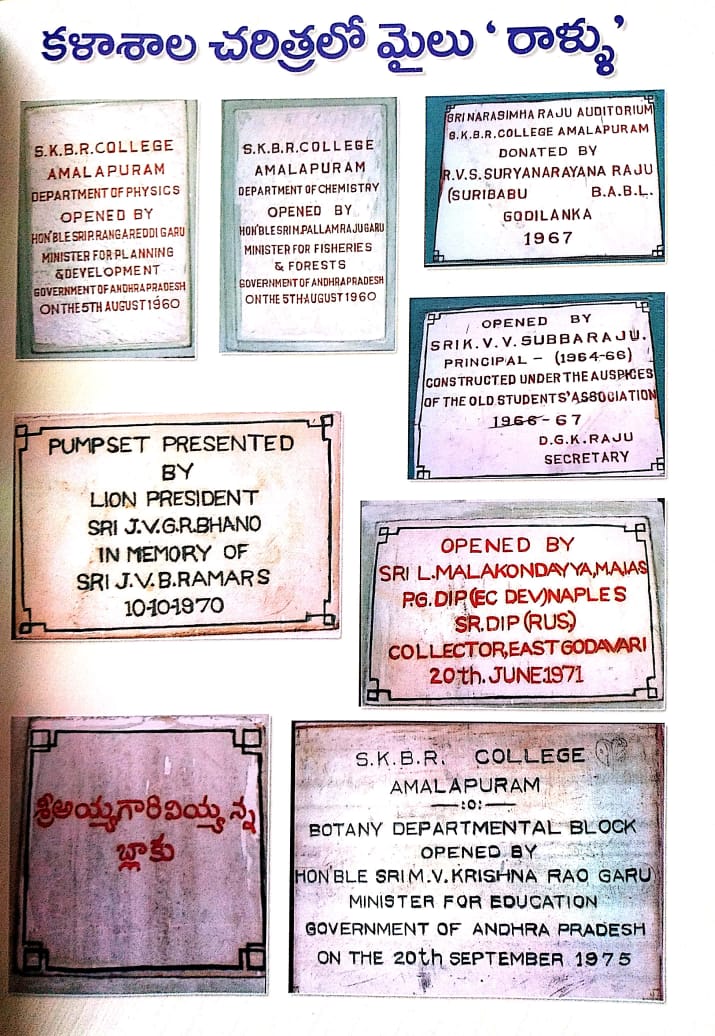 కళాశాల చరిత్రలో మైలు ‘రాళ్ళు’
S.K.B.R.COLLEGE
AMALAPURAM
DEPARTMENT OF PHYSICS
OPENED BY
HON'BLE SRI P.RANGAREDDI GARU
MINISTER FOR PLANNING
& DEVELOPMENT
GOVERNMENT OF ANDHRA PRADESH
ON THE 5TH AUGUST 1960
S.K.B.R.COLLEGE
AMALAPURAM
DEPARTMENT OF CHEMISTRY
OPENED BY
HON'BLE SRI M.PALLAMRAJU GARU
MINISTER FOR FISHERIES
& FORESTS
GOVERNMENT OF ANDHRA PRADESH
ON THE 5TH AUGUST 1960
SRI NARASIMHA RAJU AUDITORIUM
S.K.B.R.COLLEGE AMALAPURAM
DONATED BY
R.V.S.SURYANARAYANA RAJU
(SURIBABU B.A.B.L.
GODILANKA
1967
OPENED BY
SRI K.V.V.SUBBARAJU.
PRINCIPAL - (1964-66)
CONSTRUCTED UNDER THE AUSPICES
OF THE OLD STUDENTS' ASSOCIATION
1966-67
D.G.K.RAJU
SECRETARY
PUMPSET PRESENTED
BY
LION PRESIDENT
SRI J.V.G.R.BHANO
IN MEMORY OF
SRI J.V.B.RAMARS
10-10-1970
OPENED BY
SRI L.MALAKONDAYYA,M.A,IAS
P.G.DIP(EC DEV)NAPLES
SR.DIP(RUS)
COLLECTOR,EAST GODAVARI
20th.JUNE1971
శ్రీఅయ్యగారివియ్యన్న
బ్లాకు
S.K.B.R. COLLEGE
AMALAPURAM
—:0:—
BOTANY DEPARTMENTAL BLOCK
OPENED BY
HON'BLE SRI M.V.KRISHNA RAO GARU
MINISTER FOR EDUCATION
GOVERNMENT OF ANDHRA PRADESH
ON THE 20th SEPTEMBER 1975